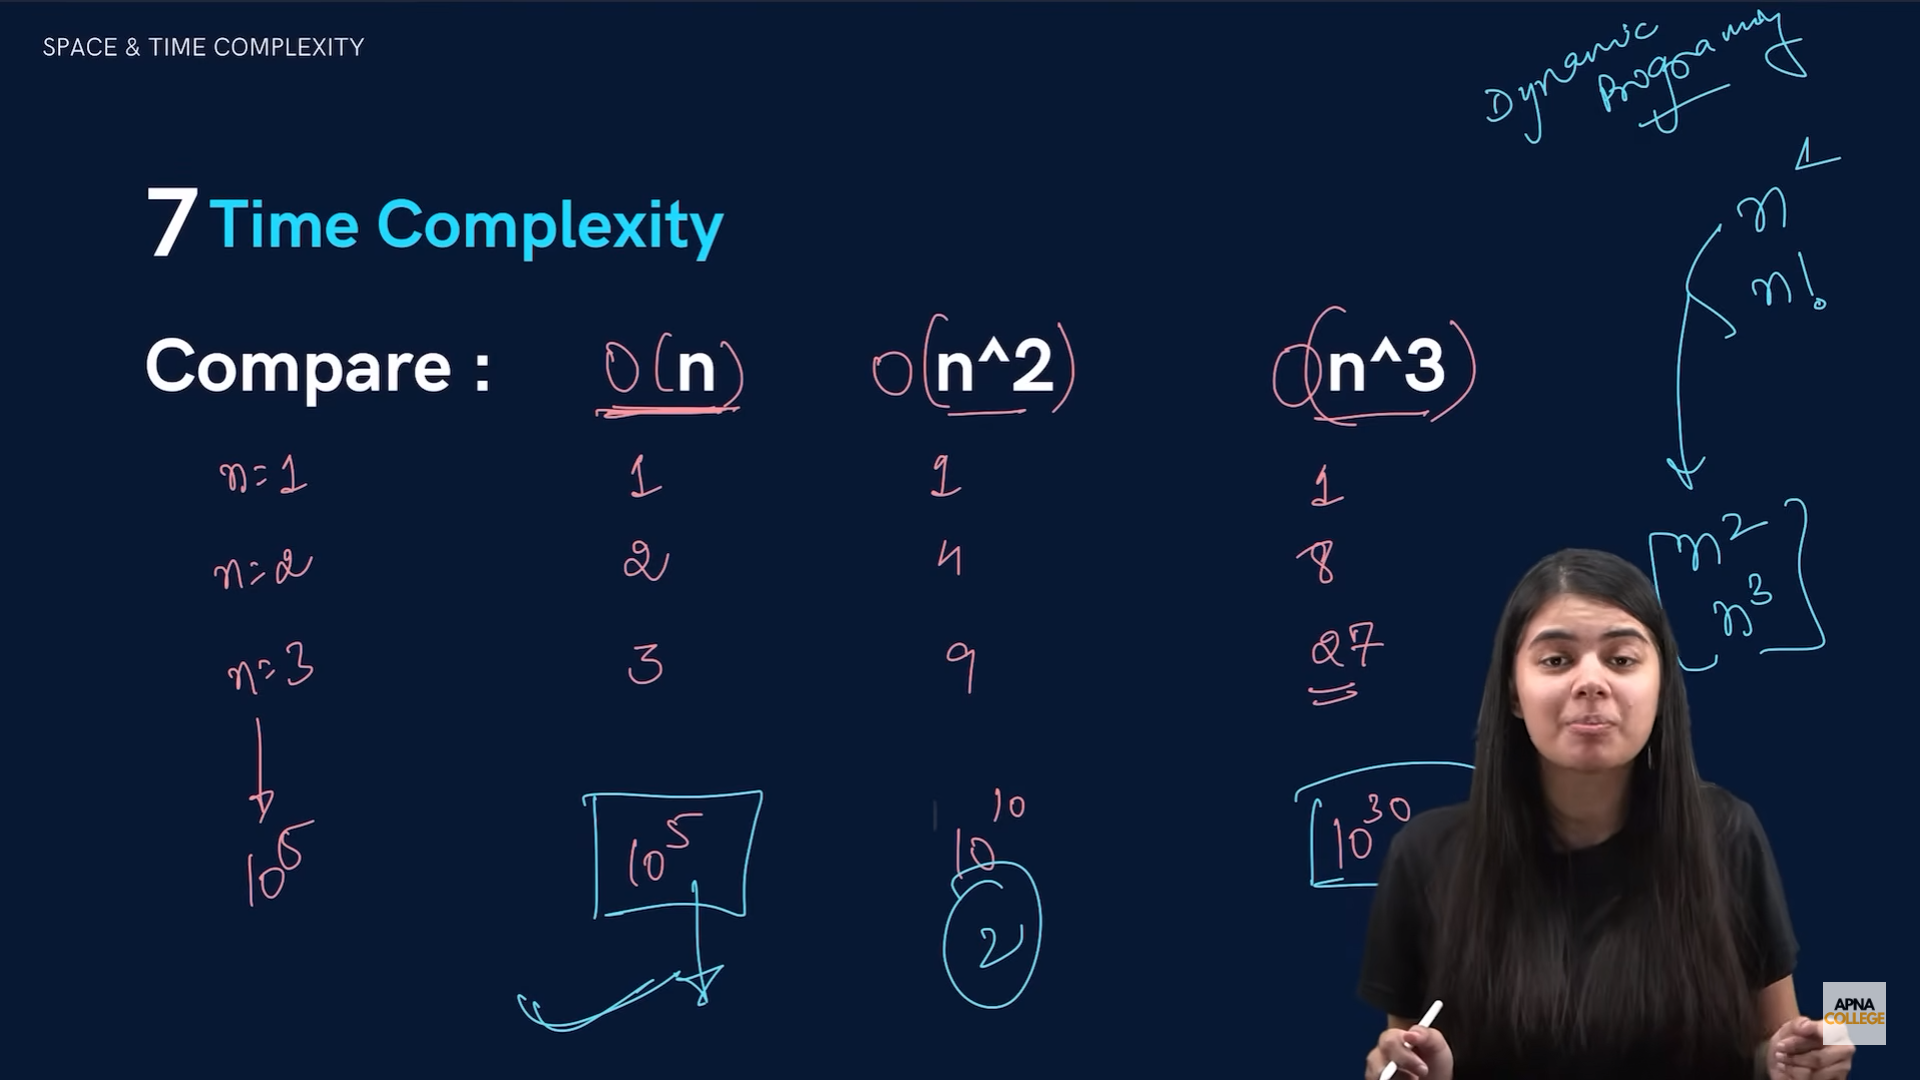 SPACE & TIME COMPLEXITY
Dynamic
Programming
7 Time Complexity
n^4
n!
Compare : O(n) O(n^2) O(n^3)
n=1 1 1 1
n=2 2 4 8
n=3 3 9 27
n^2
n^3
10^5 10^5 10^10 10^30
2
APNA
COLLEGE